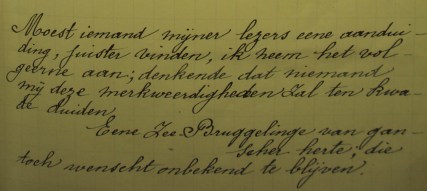 Moest iemand mijner lezers eene aandui-
ding, juister vinden, ik neem het vol-
geerne aan; denkende dat niemand
mij deze merkweerdigheden zal ten kwa-
de duiden.
Eene Zee-Bruggelinge van gan-
scher herte; die
toch wenscht onbekend te blijven.